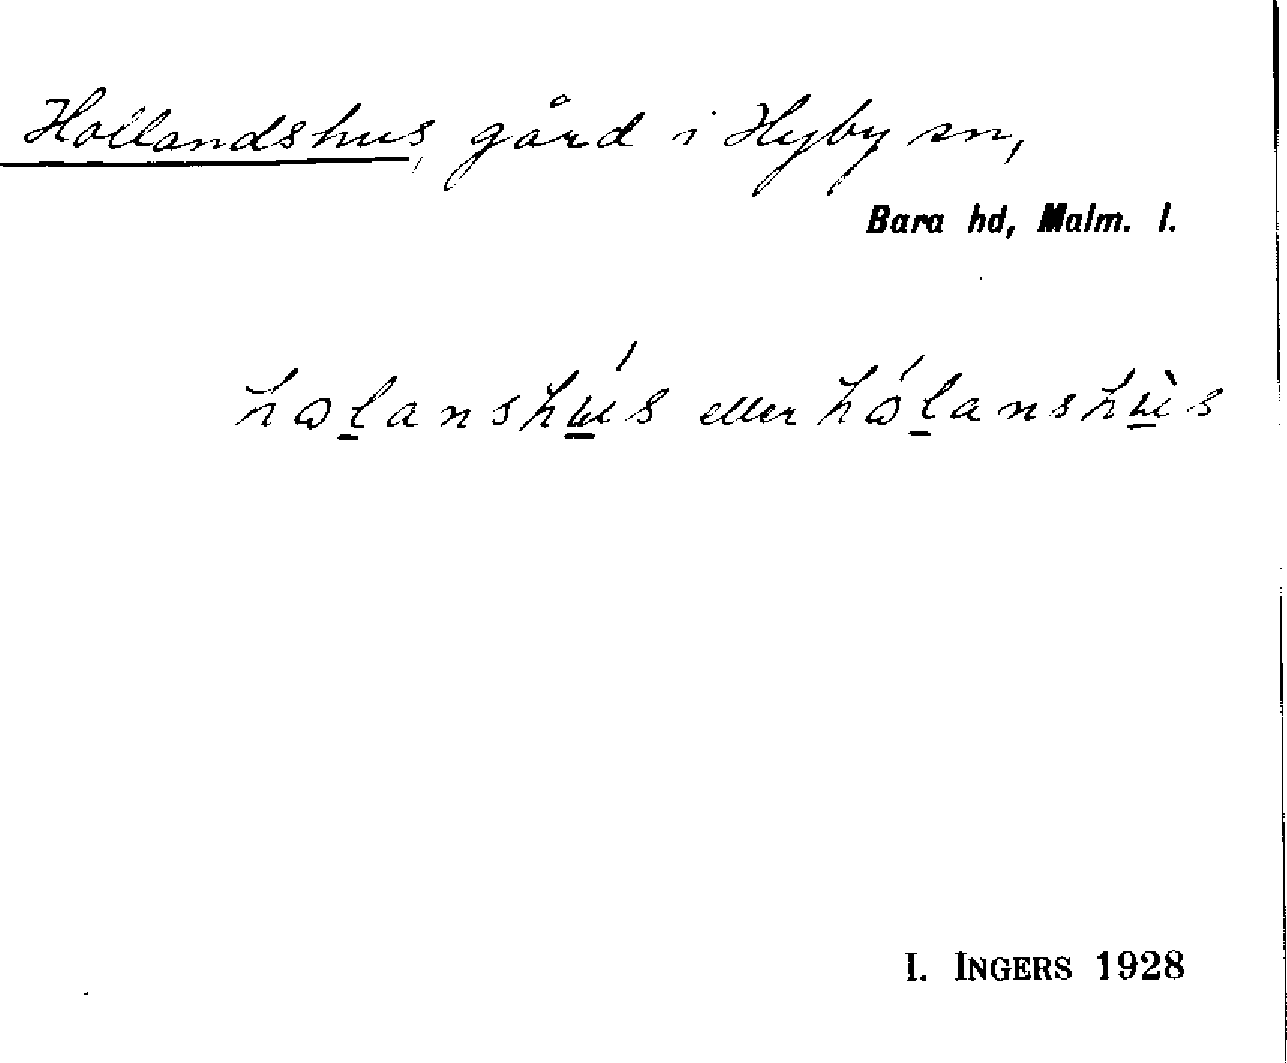 Hollandshus, gård i Hyby sn,
Bara hd, Malm. l.
hɷl̲anshú̲s eller hɷ́l̲anshù̲s
I. INGERS 1928